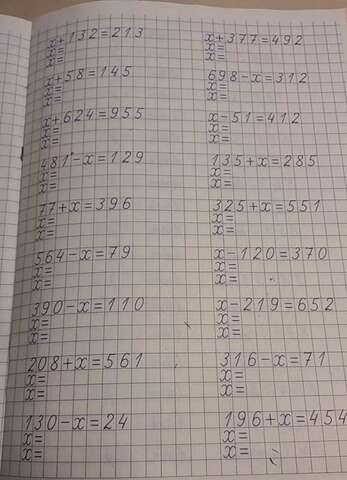 x+132=213
x=
x=
x+58=145
x=
x=
x+624=955
x=
x=
481-x=129
x=
x=
77+x=396
x=
x=
564-x=79
x=
x=
390-x=110
x=
x=
208+x=561
x=
x=
130-x=24
x=
x=
x+377=492
x=
x=
698-x=312
x=
x=
x-51=412
x=
x=
135+x=285
x=
x=
325+x=551
x=
x=
x-120=370
x=
x=
x-219=652
x=
x=
316-x=71
x=
x=
196+x=454
x=
x=